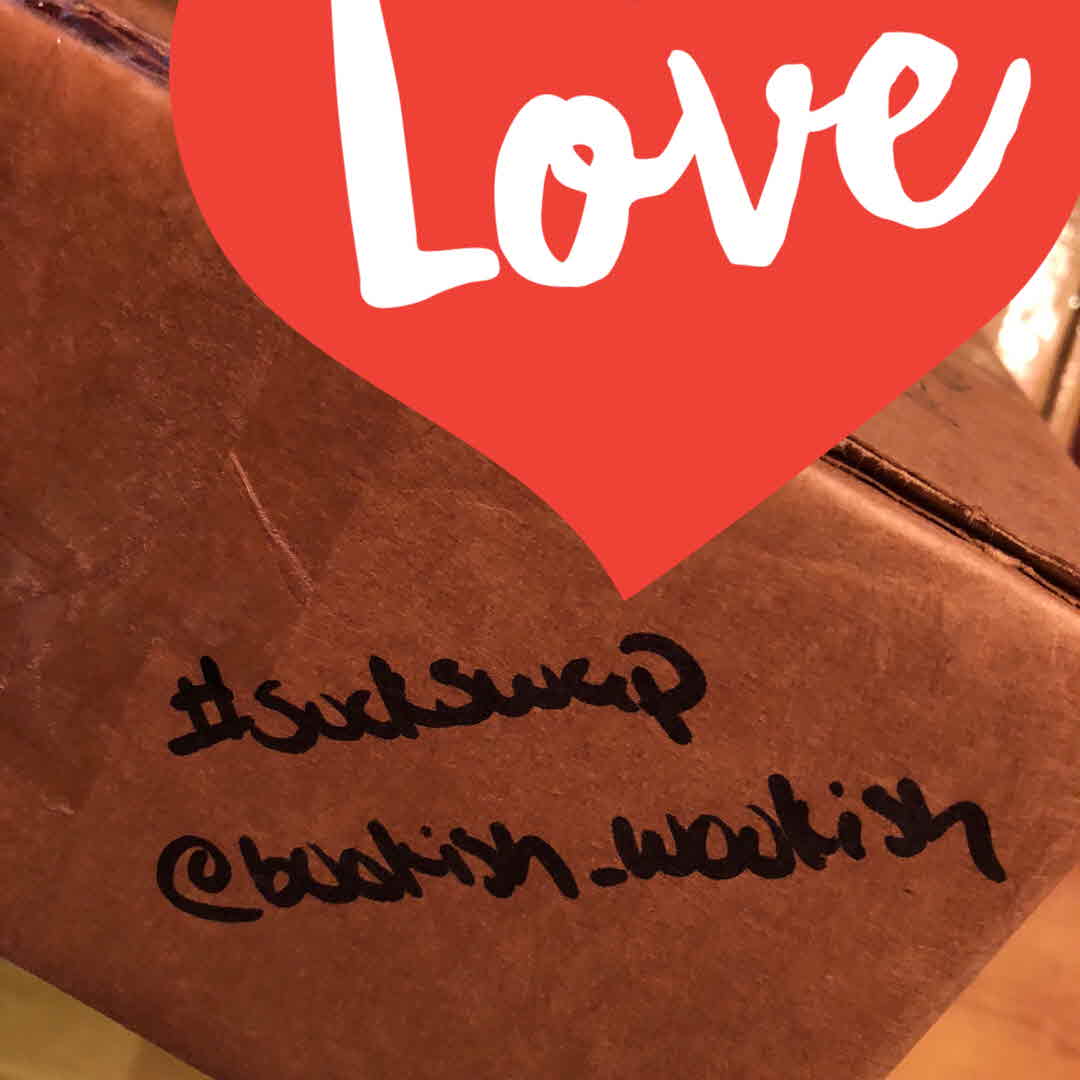 Love
#sockswap
@bookish_wookish